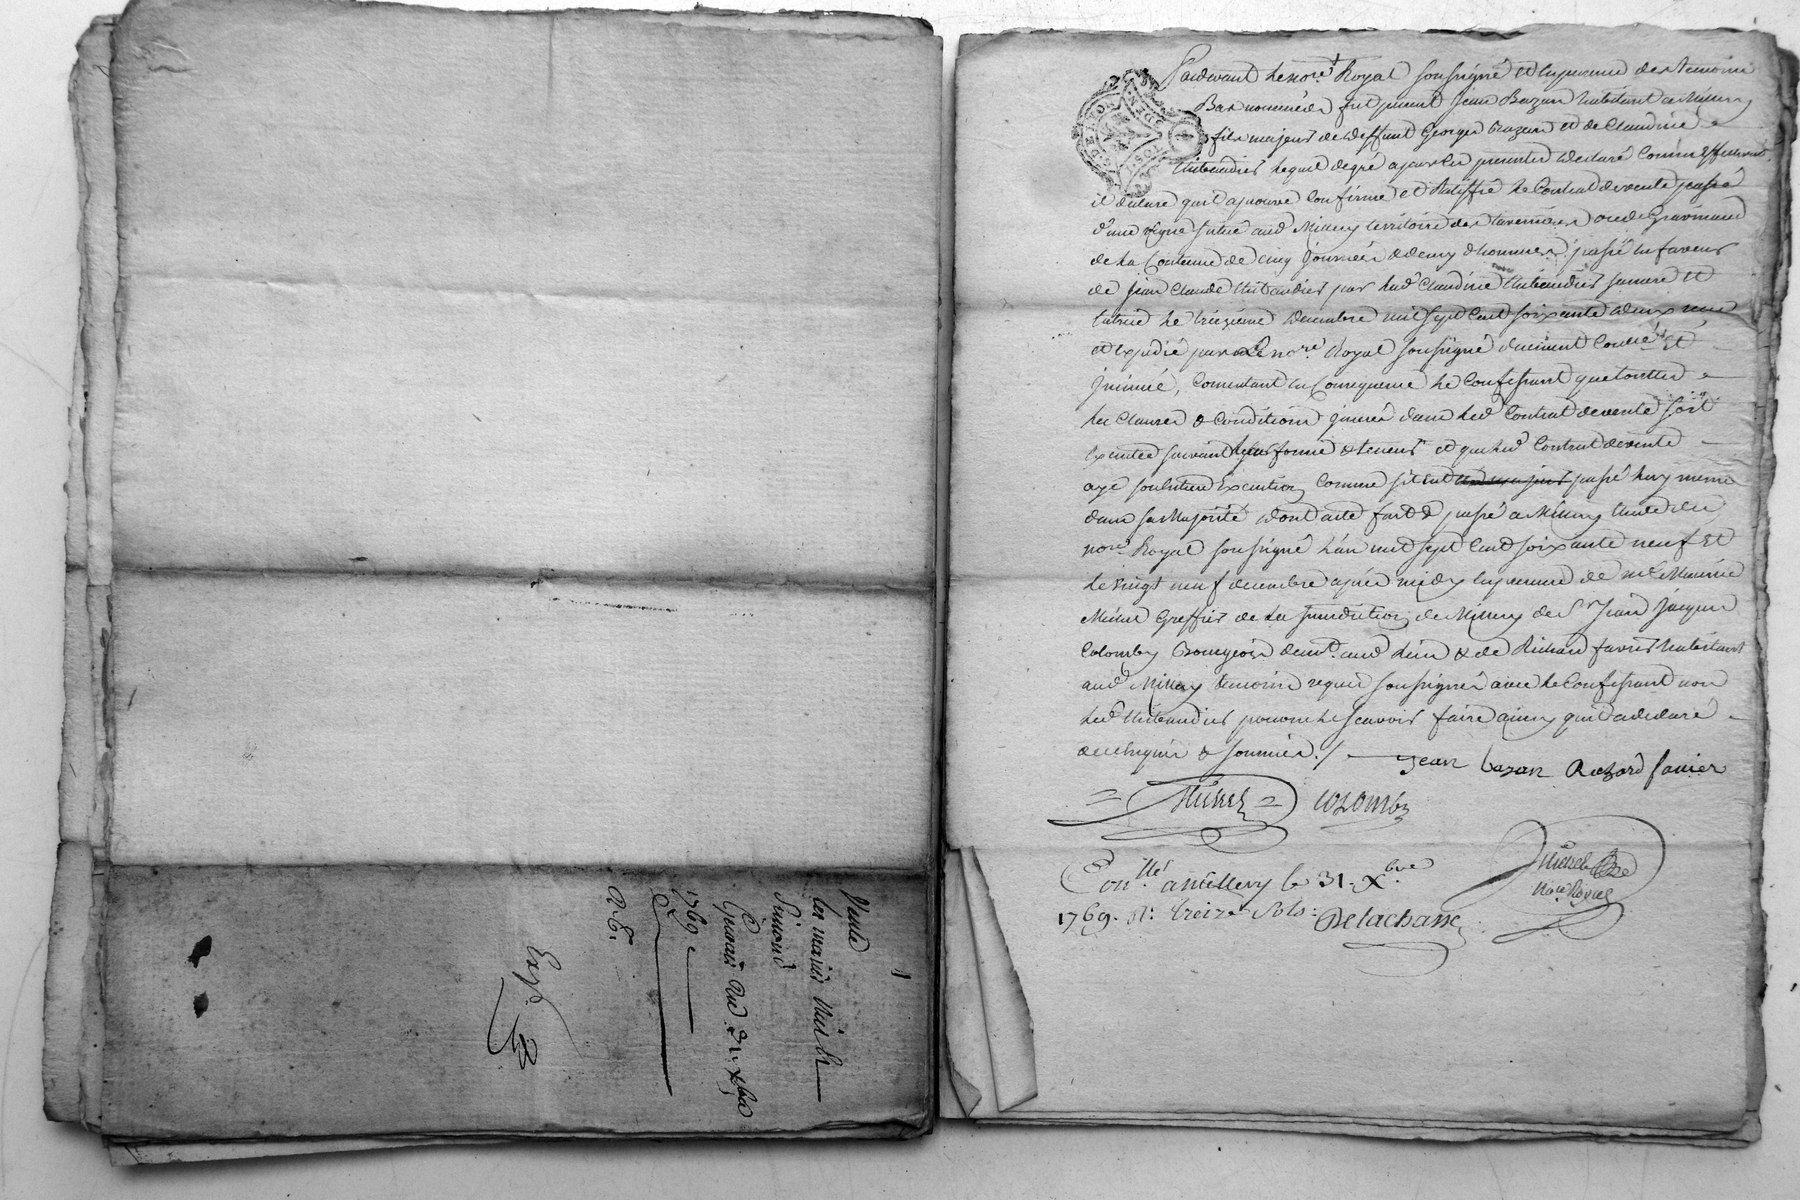 Vente
1769
Exp.
Pardevant le no.re Royal soussigné et en presence des temoins
Bas nommés fut present Jean Bazan habitant a Millery
fils majeur de deffunt Georges Bazan et de Claudine
Thibaudier lequel de gré a par les presentes declaré comme effectivement
il declare qu'il aprouve confirme et Ratiffie le Contrat de vente passé
d'une vigne située aud. Millery territoire des taverniers ou de Gravinand
de la Contenue de cinq journées & demy d'hommes passé en faveur
de Jean Claude Thibaudier par lad. Claudine Thibaudier sa mere et
tutrice le treizieme decembre mil sept cent soixante deux reçu
et expedié par le no.re Royal soussigné duement Controllé Et
jnsinué, Consentant en Consequence le Confessant que touttes
les Clauses & Conditions jnserées dans led. Contrat de vente soit
executée suivant leur forme & teneur et que led. Contrat de vente
aye son entiere Execution comme s'il eut passé luy meme
dans sa Majorité dont acte fait & passé a Millery Etude du
no.re Royal soussigné l'an mil sept cent soixante neuf Et
le vingt neuf decembre apres midy en presence de m.e Maurice
Michel Greffier de la jurisdiction de Millery de S.r Jean Jacques
Colomby Bourgeois dem.t aud. lieu & de Richard favier habitant
aud. Millery temoins requis soussignés avec le Confessant non
led. Thibaudier pour ne le scavoir faire ainsy qu'il a declaré
de ce Enquis & sommés ./. Jean bazan Richard favier
Michel Colomby
Con.llé a millery le 31. Xbre
1769. R. treize sols. Delachasse
Michel
No.re Royal